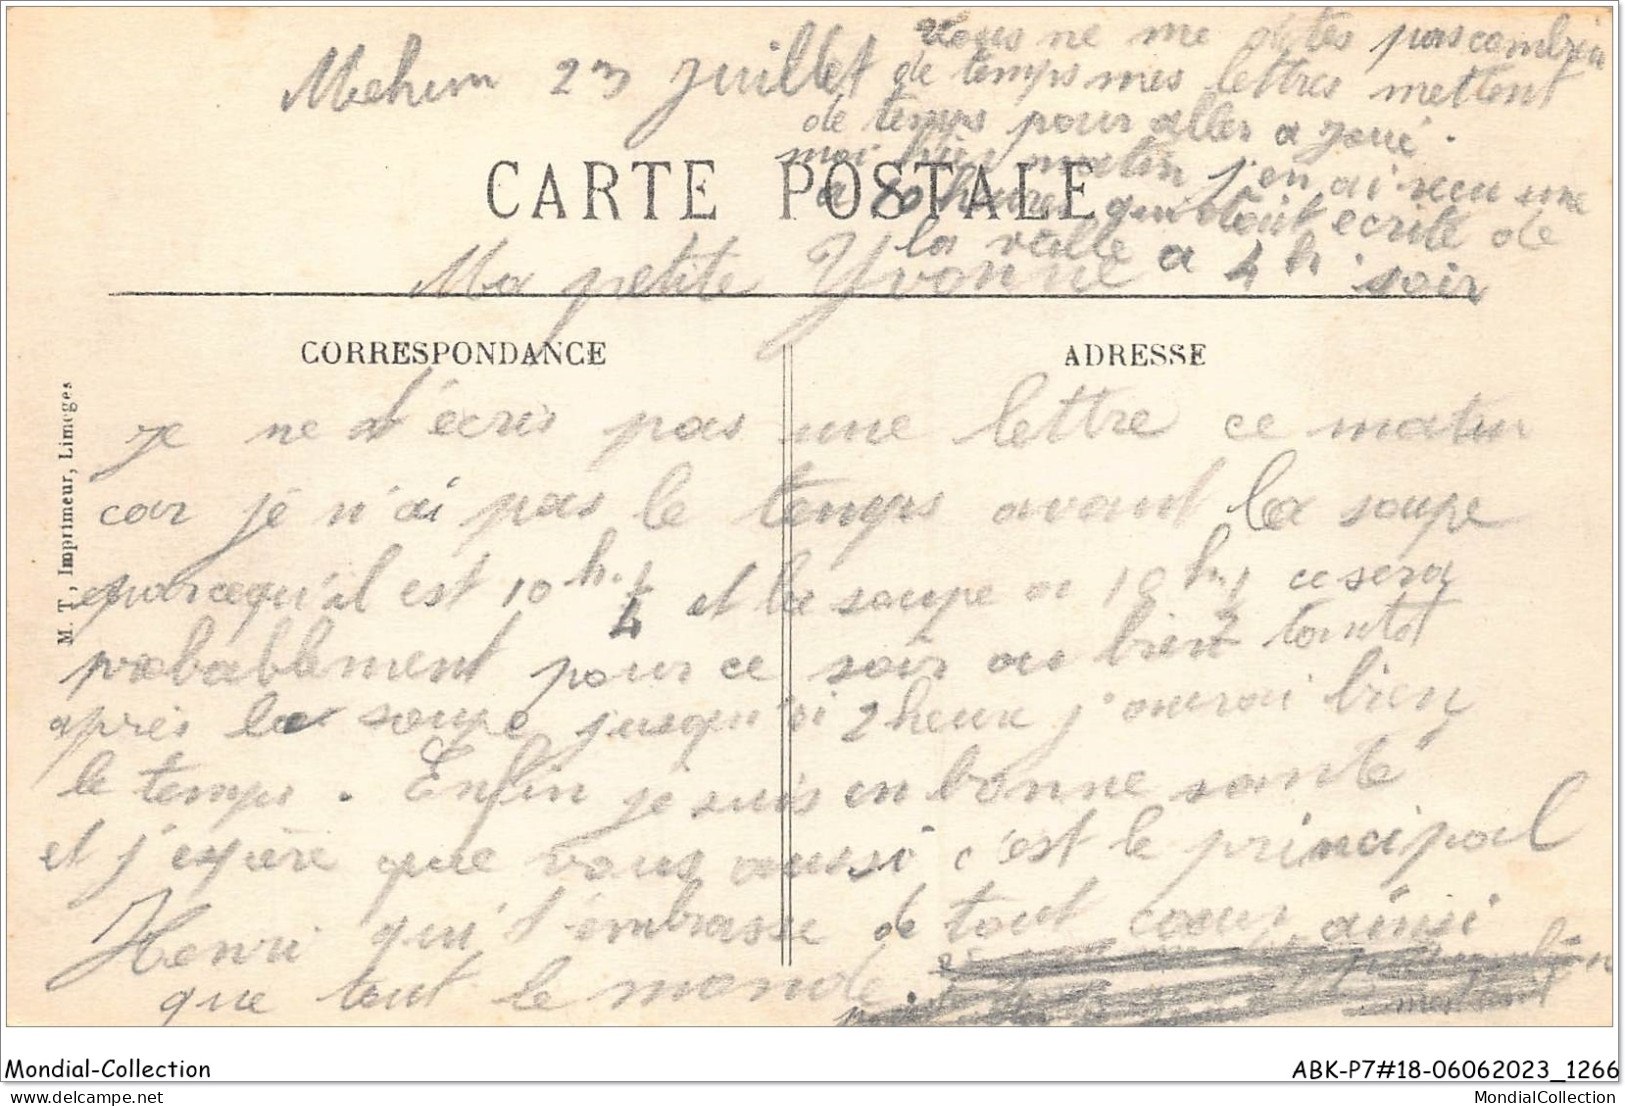 Mehun 23 juillet
vous ne me dites pas combien
de temps mes lettres mettent
de temps pour aller a Joué.
moi hier matin j'en ai recu une
a 10 heures qui était ecrite de
la veille a 4 h. soir
CARTE POSTALE
Ma petite Yvonne
CORRESPONDANCE
ADRESSE
M. T., Imprimeur, Limoges
je ne t'écris pas une lettre ce matin
car je n'ai pas le temps avant la soupe
parcequ'il est 10 h. 1/4 et la soupe a 10 h. 1/2 ce sera
probablement pour ce soir ou bien tantot
après la soupe jusqu'ai 2 heure j'aurai bien
le temps. Enfin je suis en bonne santé
et j'espère que vous aussi c'est le principal
Henri qui t'embrasse de tout coeur ainsi
que tout le monde.
mettent
Mondial-Collection
ABK-P7#18-06062023_1266
MondialCollection